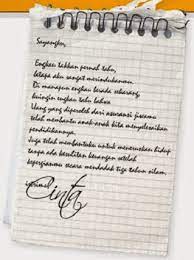 Sayangku,
Engkau takkan pernah tahu,
betapa aku sangat merindukanmu.
Di manapun engkau berada sekarang,
kuingin engkau tahu bahwa
Uang yang diperoleh dari asuransi jiwamu
telah membantu anak-anak kita menyelesaikan
pendidikannya.
Juga telah membantuku untuk meneruskan hidup
tanpa ada kesulitan keuangan setelah
kepergianmu secara mendadak tiga tahun silam.
Cinta